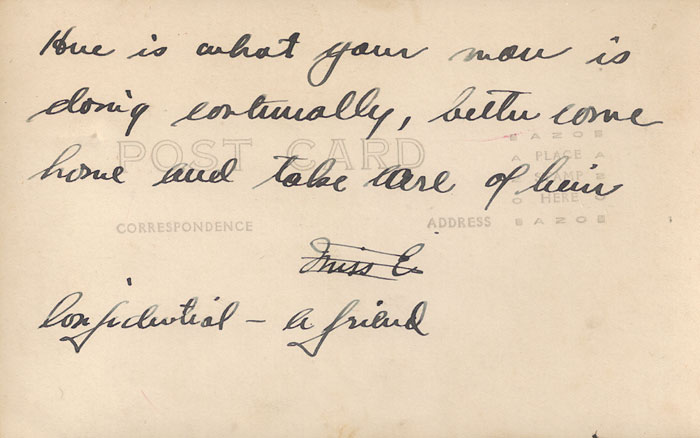 Here is what your man is
doing continually, better come
home and take care of him
POST CARD
AZO
PLACE
STAMP
HERE
AZO
CORRESPONDENCE
ADDRESS
Miss E
Confidential – a friend